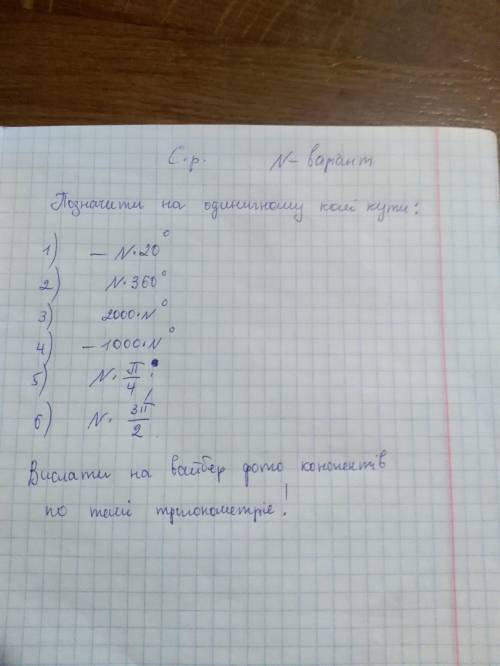 С.р. N - варіант
Позначити на одиничному колі кути:
1) - N·20°
2) N·360°
3) 2000·N°
4) - 1000·N°
5) N·π/4;
6) N·3π/2.
Вислати на вайбер фото конспектів
по темі тригонометріє!